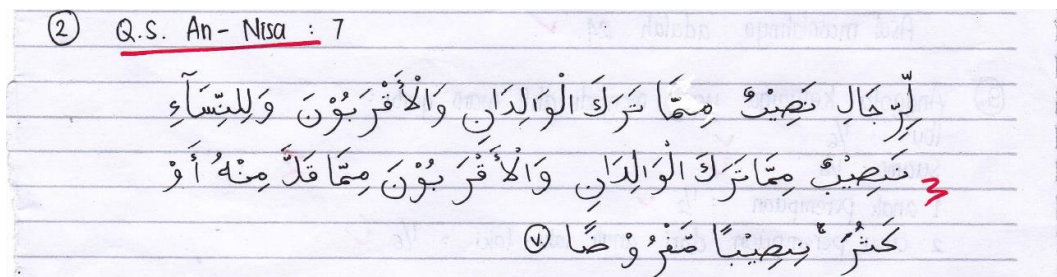 ② Q.S. An - Nisa : 7
لِّرِّجَالِ نَصِيْبٌ مِمَّا تَرَكَ الْوَالِدَانِ وَالْأَقْرَبُوْنَ وَلِلنِّسَآءِ
نَصِيْبٌ مِمَّا تَرَكَ الْوَالِدَانِ وَالْأَقْرَبُوْنَ مِمَّا قَلَّ مِنْهُ أَوْ
كَثُرَ نَصِيْبًا مَّفْرُوْضًا ⓥ